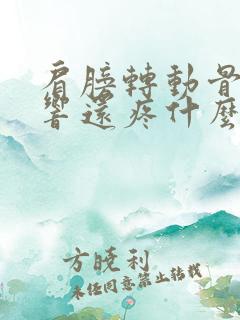 肩膀轉動骨
響還疼什麼
方曉利
未經同意禁止轉載